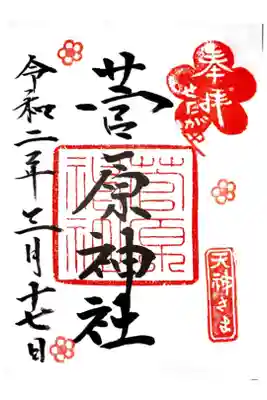 奉拝
せたがや
菅原神社
菅原神社
天神さま
令和二年二月十七日